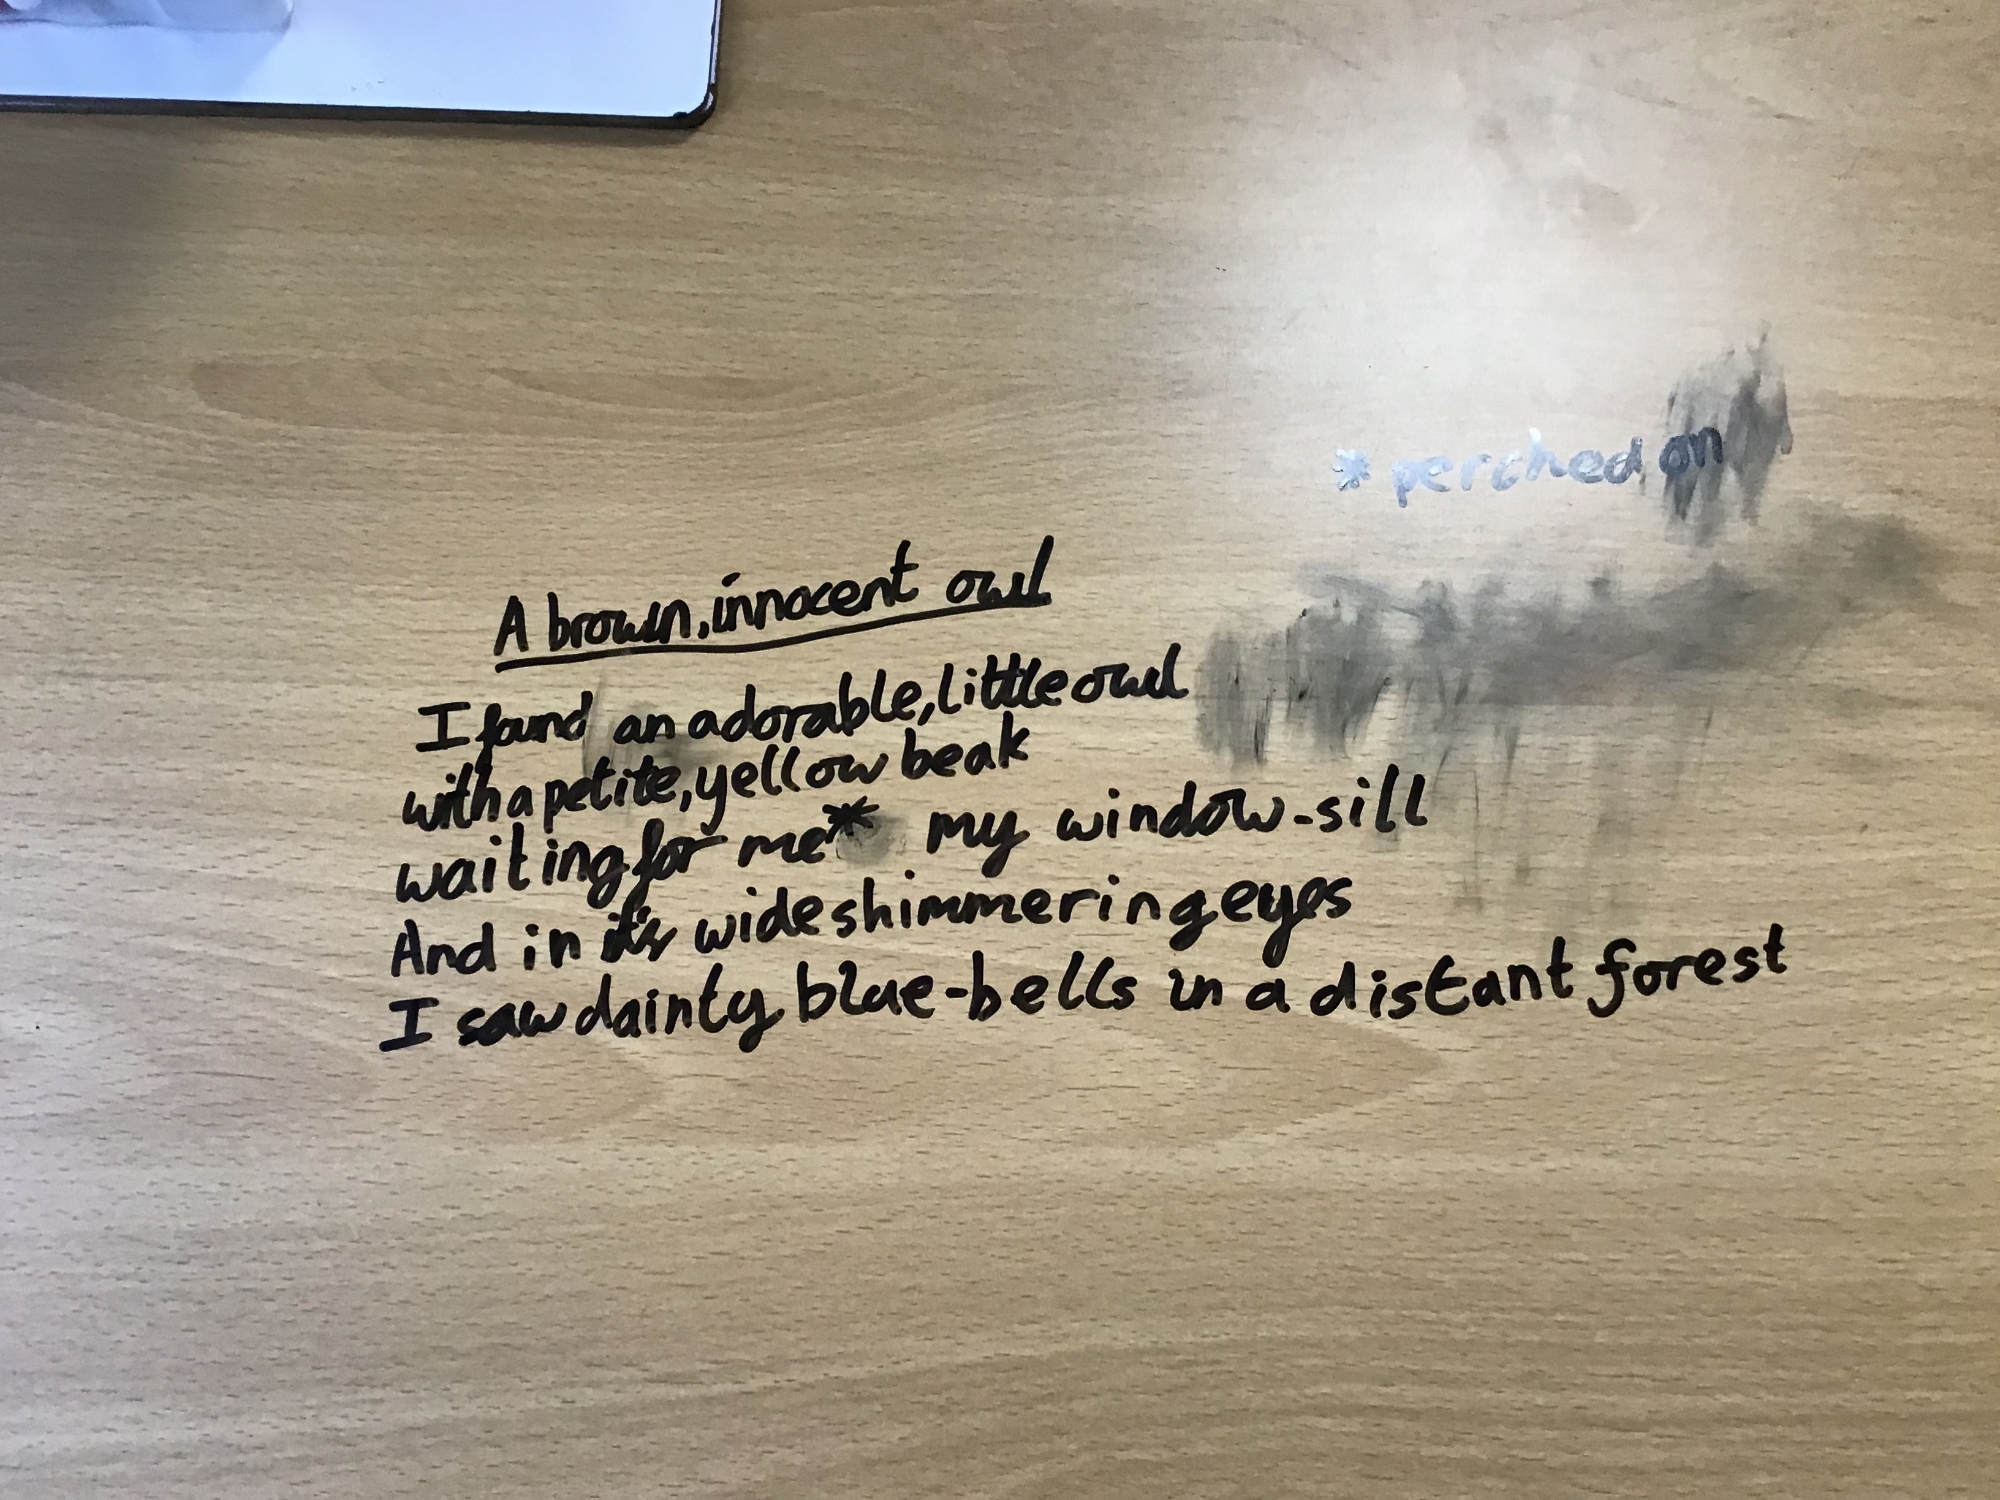 * perched on
A brown, innocent owl
I found an adorable, little owl
with a petite, yellow beak
waiting for me* my window-sill
And in it's wide shimmering eyes
I saw dainty blue-bells in a distant forest